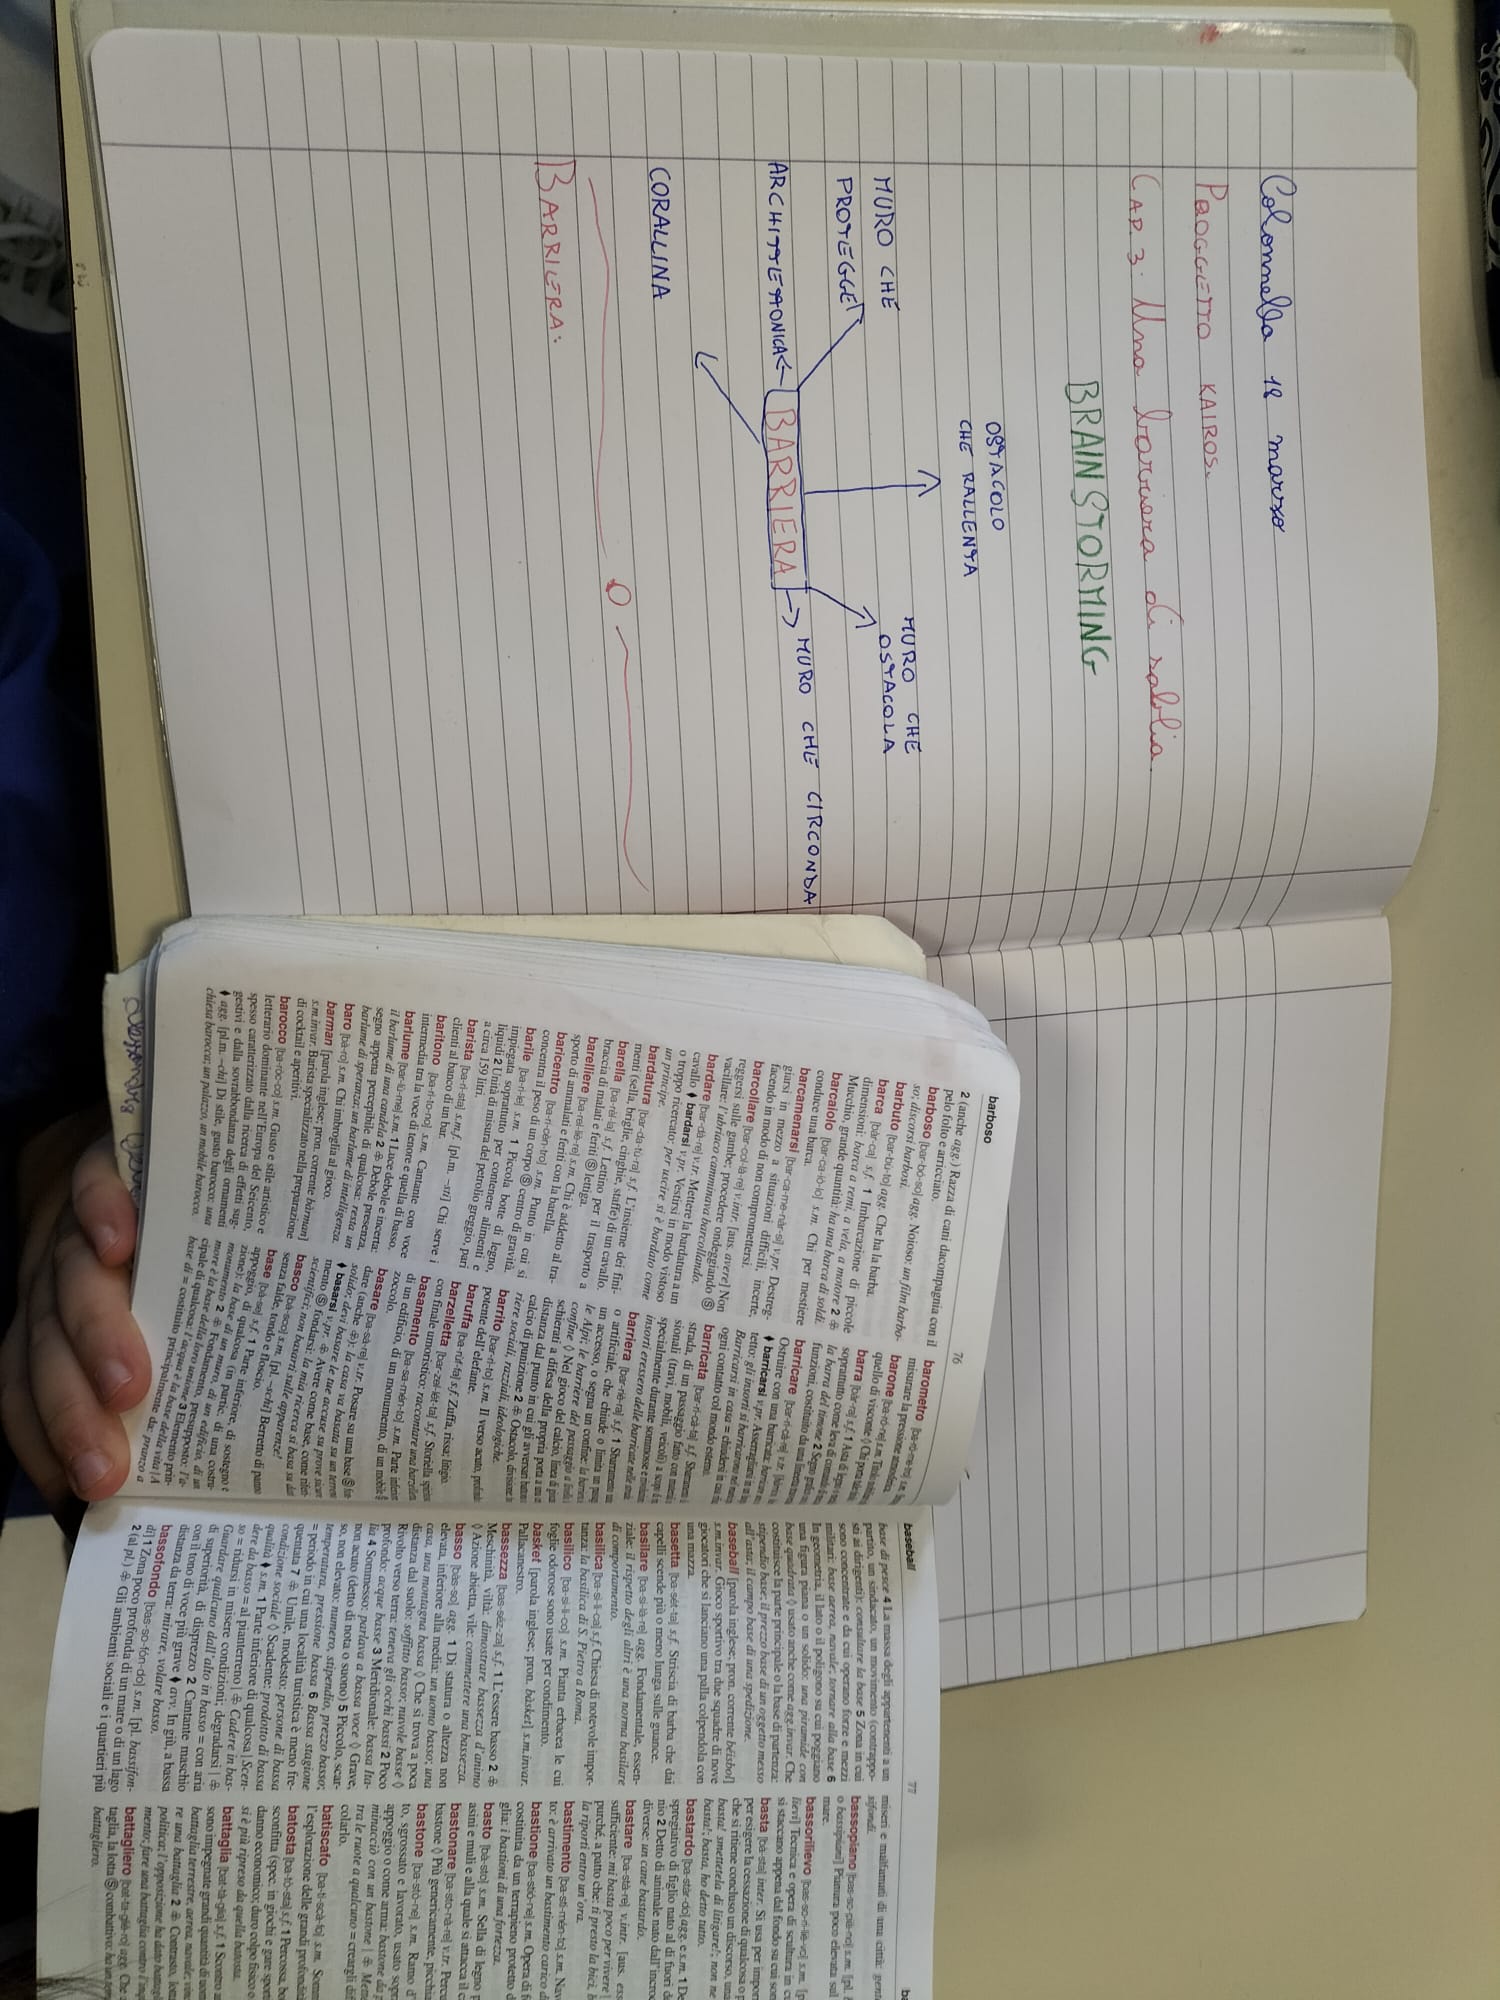 Colonnella 18 marzo
PROGGETTO KAIROS.
CAP. 3. Una barriera di sabbia.
BRAINSTORMING
OSTACOLO
CHE RALLENTA
MURO CHE
PROTEGGE
MURO CHE
OSTACOLA
ARCHITTETTONICA
BARRIERA
MURO CHE CIRCONDA
CORALLINA
BARRIERA:
barboso
76
2 (anche agg.) Razza di cani dacompagnia con il
pelo folto e arricciato.
barboso [bar-bó-so] agg. Noioso: un film barbo-
so; discorsi barbosi.
barbuto [bar-bù-to] agg. Che ha la barba.
barca [bàr-ca] s.f. 1 Imbarcazione di piccole
dimensioni: barca a remi, a vela, a motore 2
Mucchio, grande quantità: ha una barca di soldi.
barcaiolo [bar-ca-iò-lo] s.m. Chi per mestiere
conduce una barca.
barcamenarsi [bar-ca-me-nàr-si] v.pr. Destreg-
giarsi in mezzo a situazioni difficili, incerte,
facendo in modo di non compromettersi.
barcollare [bar-col-là-re] v.intr. [aus. avere] Non
reggersi sulle gambe; procedere ondeggiando Ⓢ
vacillare: l'ubriaco camminava barcollando.
bardare [bar-dà-re] v.tr. Mettere la bardatura a un
cavallo ♦ bardarsi v.pr. Vestirsi in modo vistoso
o troppo ricercato: per uscire si è bardato come
un principe.
bardatura [bar-da-tù-ra] s.f. L'insieme dei fini-
menti (sella, briglie, cinghie, staffe) di un cavallo.
barella [ba-rèl-la] s.f. Lettino per il trasporto a
braccia di malati e feriti Ⓢ lettiga.
barelliere [ba-rel-liè-re] s.m. Chi è addetto al tra-
sporto di ammalati e feriti con la barella.
baricentro [ba-ri-cèn-tro] s.m. Punto in cui si
concentra il peso di un corpo Ⓢ centro di gravità.
barile [ba-rì-le] s.m. 1 Piccola botte di legno,
impiegata soprattutto per contenere alimenti e
liquidi 2 Unità di misura del petrolio greggio, pari
a circa 159 litri.
barista [ba-rì-sta] s.m.f. [pl.m. -sti] Chi serve i
clienti al banco di un bar.
baritono [ba-rì-to-no] s.m. Cantante con voce
intermedia tra la voce di tenore e quella di basso.
barlume [bar-lù-me] s.m. 1 Luce debole e incerta:
il barlume di una candela 2 Debole presenza,
segno appena percepibile di qualcosa: resta un
barlume di speranza; un barlume di intelligenza.
baro [bà-ro] s.m. Chi imbroglia al gioco.
barman [parola inglese; pron. corrente bàrman]
s.m.invar. Barista specializzato nella preparazione
di cocktail e aperitivi.
barocco [ba-ròc-co] s.m. Gusto e stile artistico e
letterario dominante nell'Europa del Seicento,
spesso caratterizzato dalla ricerca di effetti sug-
gestivi e dalla sovrabbondanza degli ornamenti
♦ agg. [pl.m. -chi] Di stile, gusto barocco: una
chiesa barocca; un palazzo, un mobile barocco.
barometro
misurare la pressione atmosferica.
barone
quello di visconte
barra [bàr-ra] s.f. 1 Asta di legno
soprattutto come leva di comando
la barra del timone 2 Segno grafico
funzioni, costituito da una lineetta
barricare [bar-ri-cà-re] v.tr.
Ostruire con una barricata:
♦ barricarsi v.pr. Asserragliarsi in un luogo
tetto: gli insorti si barricarono nel
Barricarsi in casa = chiudersi in casa
ogni contatto col mondo esterno.
barricata [bar-ri-cà-ta] s.f. Sbarramento
strada, di un passaggio fatto con
sionali (travi, mobili, veicoli) a scopo
specialmente durante sommosse e rivoluzioni:
insorti eressero delle barricate nelle strade.
barriera [bar-riè-ra] s.f. 1 Sbarramento
o artificiale, che chiude o limita un passaggio,
un accesso, o segna un confine: la barriera
le Alpi; le barriere del passaggio a livello
confine ◊ Nel gioco del calcio, linea di giocatori
schierati a difesa della propria porta a una
distanza dal punto in cui gli avversari battono
calcio di punizione 2 Ostacolo, divisione:
riere sociali, razziali, ideologiche.
barrito [bar-rì-to] s.m. Il verso acuto, profondo
potente dell'elefante.
baruffa [ba-rùf-fa] s.f. Zuffa, rissa; litigio.
barzelletta [bar-zel-lét-ta] s.f. Storiella spiritosa
con finale umoristico: raccontare una barzelletta.
basamento [ba-sa-mén-to] s.m. Parte inferiore
di un edificio, di un monumento, di un mobile Ⓢ
zoccolo.
basare [ba-sà-re] v.tr. Posare su una base Ⓢ fon-
dare (anche ): la casa va basata su un terreno
solido; devi basare le tue accuse su prove sicure
♦ basarsi v.pr. Avere come base, come riferi-
mento Ⓢ fondarsi: la mia ricerca si basa su dati
scientifici; non basarti sulle apparenze!
basco [bà-sco] s.m. [pl. -schi] Berretto di panno
senza falde, tondo e floscio.
base [bà-se] s.f. 1 Parte inferiore, di sostegno e
appoggio, di qualcosa (in partic. di una costru-
zione): la base di un muro, di un edificio, di un
monumento 2 Fondamento, presupposto: l'a-
more è la base della loro unione 3 Elemento prin-
cipale di qualcosa: l'acqua è la base della vita | A
base di = costituito principalmente da: pranzo a
baseball
77
base di pesce 4 La massa degli appartenenti a un
partito, un sindacato, un movimento (contrappo-
sti ai dirigenti): consultare la base 5 Zona in cui
sono concentrate e da cui operano forze e mezzi
militari: base aerea, navale; tornare alla base 6
In geometria, il lato o il poligono su cui poggiano
una figura piana o un solido: una piramide con
base quadrata ◊ usato anche come agg.invar. Che
costituisce la parte principale o la base di partenza:
stipendio base; il prezzo base di un oggetto messo
all'asta; il campo base di una spedizione.
baseball [parola inglese; pron. corrente béisbol]
s.m.invar. Gioco sportivo tra due squadre di nove
giocatori che si lanciano una palla colpendola con
una mazza.
basetta [ba-sét-ta] s.f. Striscia di barba che dai
capelli scende più o meno lunga sulle guance.
basilare [ba-si-là-re] agg. Fondamentale, essen-
ziale: il rispetto degli altri è una norma basilare
di comportamento.
basilica [ba-sì-li-ca] s.f. Chiesa di notevole impor-
tanza: la basilica di S. Pietro a Roma.
basilico [ba-sì-li-co] s.m. Pianta erbacea le cui
foglie odorose sono usate per condimento.
basket [parola inglese; pron. bàsket] s.m.invar.
Pallacanestro.
bassezza [bas-séz-za] s.f. 1 L'essere basso 2
Meschinità, viltà: dimostrare bassezza d'animo
◊ Azione abietta, vile: commettere una bassezza.
basso [bàs-so] agg. 1 Di statura o altezza non
elevata, inferiore alla media: un uomo basso; una
casa, una montagna bassa ◊ Che si trova a poca
distanza dal suolo: soffitto basso; nuvole basse ◊
Rivolto verso terra: teneva gli occhi bassi 2 Poco
profondo: acque basse 3 Meridionale: bassa Ita-
lia 4 Sommesso: parlava a bassa voce ◊ Grave,
non acuto (detto di nota o suono) 5 Piccolo, scar-
so, non elevato: numero, stipendio, prezzo basso;
temperatura, pressione bassa 6 Bassa stagione
= periodo in cui una località turistica è meno fre-
quentata 7 Umile, modesto: persone di bassa
condizione sociale ◊ Scadente: prodotto di bassa
qualità ♦ s.m. 1 Parte inferiore di qualcosa | Scen-
dere da basso = al pianterreno | Cadere in bas-
so = ridursi in misere condizioni; degradarsi |
Guardare qualcuno dall'alto in basso = con aria
di superiorità, di disprezzo 2 Cantante maschio
con il tono di voce più grave ♦ avv. In giù, a bassa
distanza da terra: mirare, volare basso.
bassofondo [bas-so-fón-do] s.m. [pl. bassifon-
di] 1 Zona poco profonda di un mare o di un lago
2 (al pl.) Gli ambienti sociali e i quartieri più
miseri e malfamati di una città: gente
sifondi.
bassopiano [bas-so-pià-no] s.m. [pl.
o bassipiani] Pianura poco elevata sul
mare.
bassorilievo [bas-so-ri-liè-vo] s.m.
lievi] Tecnica e opera di scultura in cui
si staccano appena dal fondo su cui sono
basta [bà-sta] inter. Si usa per impor
per esigere la cessazione di qualcosa o
che si ritiene concluso un discorso, una
basta! smettetela di litigare!; non ne
basta!; basta, ho detto tutto.
bastardo [ba-stàr-do] agg. e s.m. 1 De
spregiativo di figlio nato al di fuori de
nio 2 Detto di animale nato dall'incro
diverse: un cane bastardo.
bastare [ba-stà-re] v.intr. [aus. ess
sufficiente: mi basta poco per vivere
purché, a patto che: ti presto la bici, b
la riporti entro un'ora.
bastimento [ba-sti-mén-to] s.m. Nav
to: è arrivato un bastimento carico di
bastione [ba-stió-ne] s.m. Opera di f
costituita da un terrapieno protetto d
glia: i bastioni di una fortezza.
basto [bà-sto] s.m. Sella di legno p
asini e muli e alla quale si attacca il c
bastonare [ba-sto-nà-re] v.tr. Percu
bastone ◊ Più genericamente, picchia
bastone [ba-stó-ne] s.m. Ramo d'
to, sgrossato e lavorato, usato sopr
appoggio o come arma: bastone da p
minacciò con un bastone | Mette
tra le ruote a qualcuno = creargli dif
colarlo.
batiscafo [ba-ti-scà-fo] s.m. Somm
l'esplorazione delle grandi profondità
batosta [ba-tò-sta] s.f. 1 Percossa, bo
sconfitta (spec. in giochi e gare sporti
danno economico; duro colpo fisico o
si è più ripreso da quella batosta.
battaglia [bat-tà-glia] s.f. 1 Scontro a
sono impegnate grandi quantità di uom
battaglia terrestre, aerea, navale; vinc
re una battaglia 2 Contrasto, lotta
politica: l'opposizione ha dato battagl
mento; fare una battaglia contro l'inq
battagliero [bat-ta-gliè-ro] agg. Che
taglia, la lotta Ⓢ combattivo: ha un
battagliero.